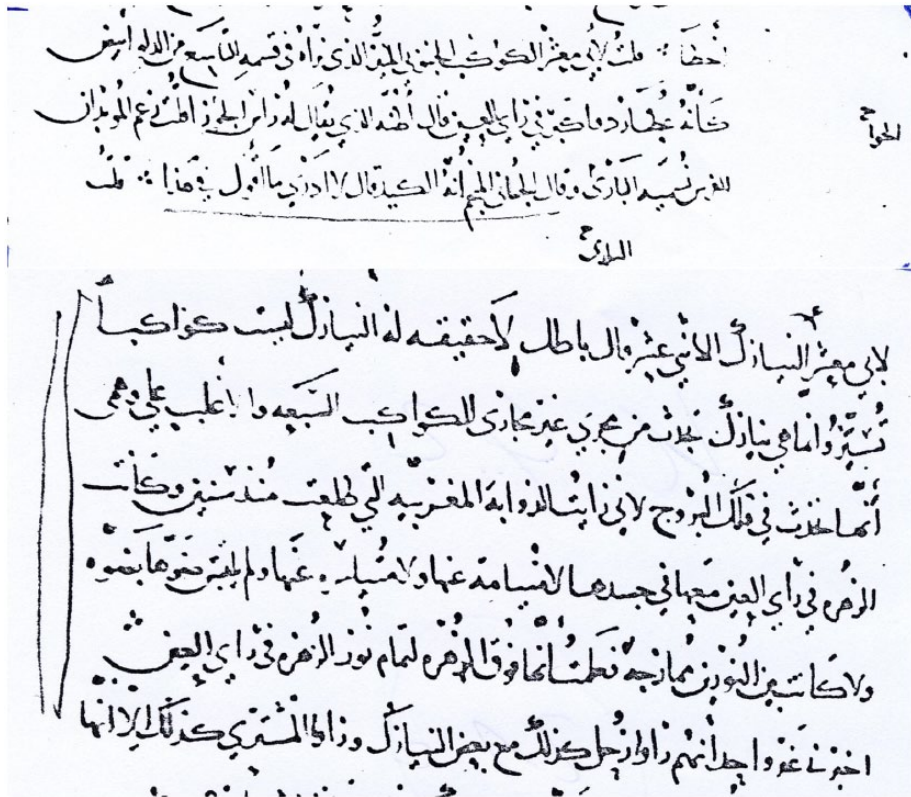 أخطأ ∴ قلت لأبي معشر الكوكب الجنوبي المنير الذي نراه في قسمه التاسع من الدلو أبيض
كأنه عطارد وما كبر في رأي العين قال أظنه الذي يقال له رأس الجوزا قلت زعم الموبذان
الفرس تسميه البازي وقال المنجم انه الكيد قال لا ادري ما أقول في هذا ∴ قلت
لابي معشر النيازك الاثني عشر قال باطل لا حقيقه له النيازك ليست كواكبا
تسير وانما هي نيازك تحدث من مجرى غير مجارى الكواكب السبعه والاغلب على وهمى
أنها تحدث في فلك البروج لاني رايت الذوابة المغربيه التي طلعت منذ سنين وكانت
الزهره في رأي العين معها في جسدها لا متيامنة عنها ولا متياسره عنها ولم يختلط ضوها بضوه
ولا كانت بين النورين ممازجة فعلمت أنها فوق الزهره لتمام نور الزهره في راي العين
اخبرني غير واحد أنهم راوا زحل كذلك مع بعض النيازك وراوا المشتري كذلك الا انها